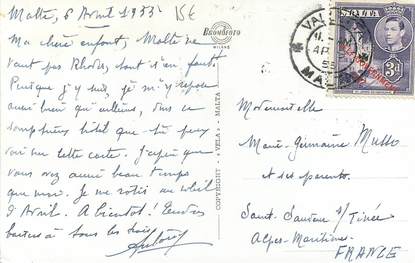 Malte, 6 Avril 1955 15€
Ma chère enfant, Malte ne
vaut pas Rhodes, tout s'en faut.
Puisque j'y suis, je m'y repose
aussi bien qu'ailleurs, dans ce
somptueux hôtel que tu peux
voir sur cette carte. J'espère que
vous avez aussi beau temps
que moi. Je me rôtis au soleil
d'Avril. A bientôt! Tendres
baisers à tous les trois
BROMOFOTO
MILANO
COPYRIGHT « VELA » MALTA
VALLETTA
AP
55
MALTA
3D
Mademoiselle
Marie-Germaine Musso
et ses parents
Saint Sauveur s/ Tinée
Alpes-Maritimes
FRANCE